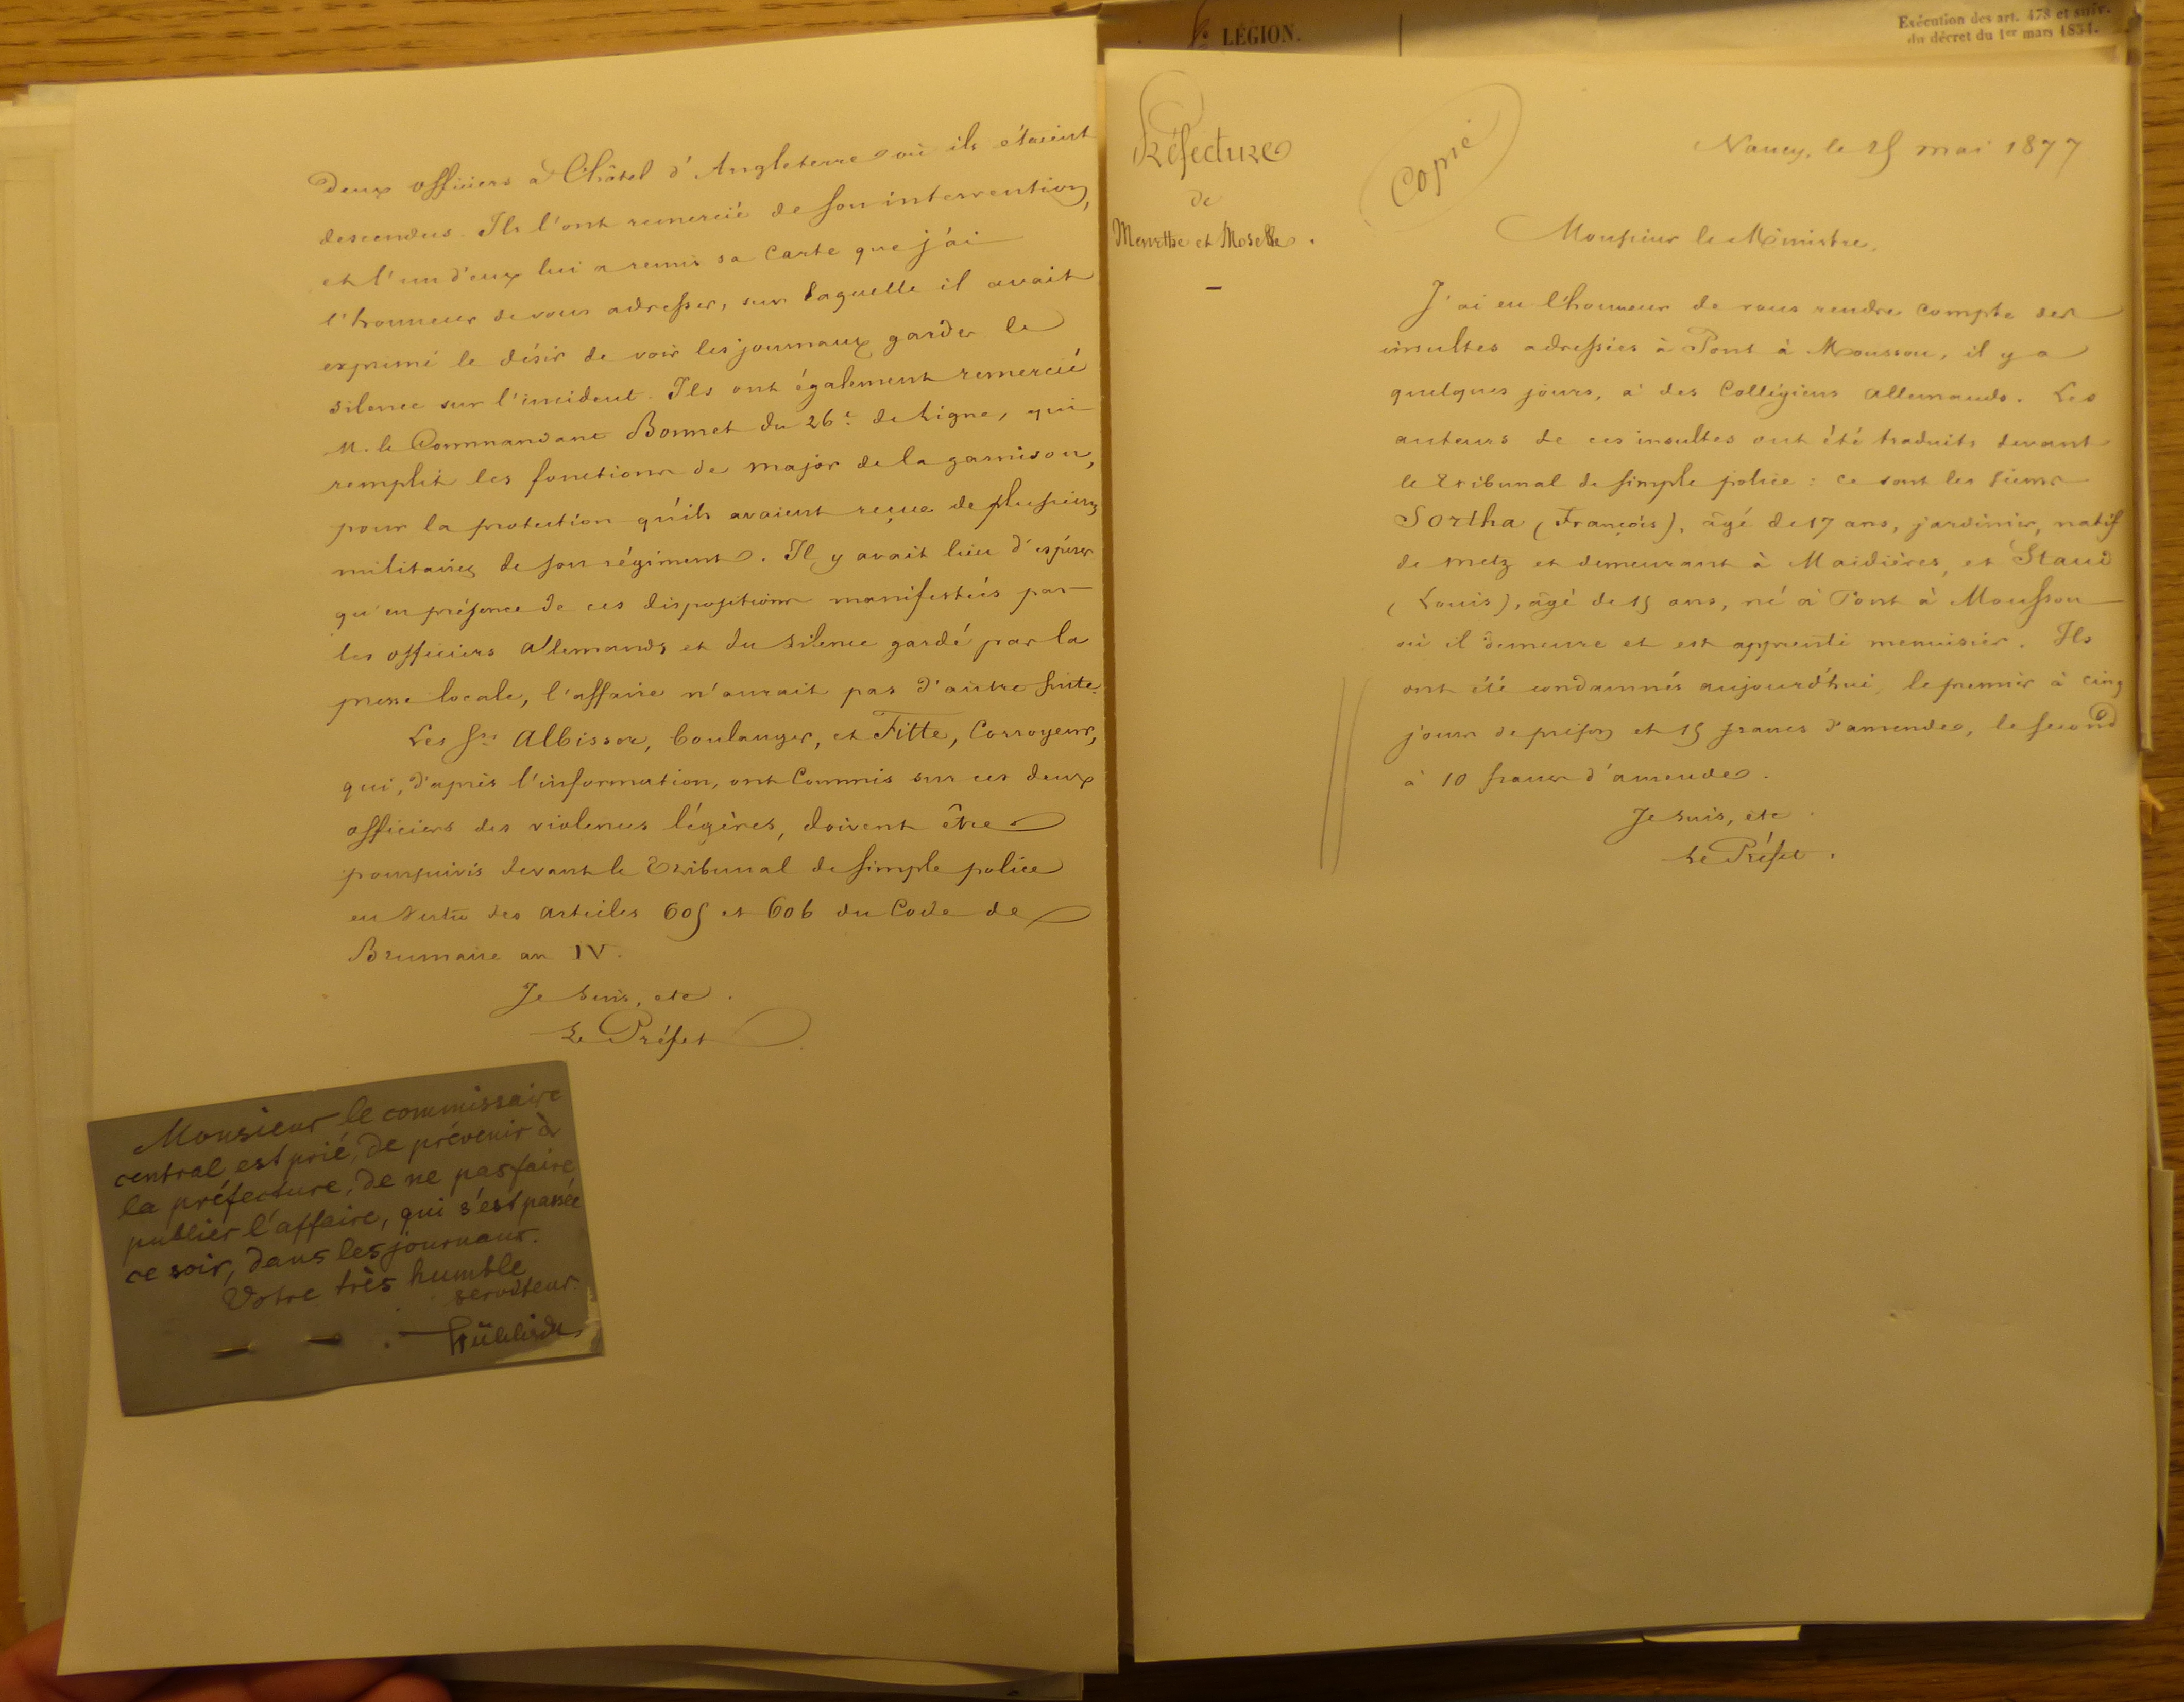 deux officiers à l'hôtel d'Angleterre où ils étaient
descendus. Ils l'ont remercié de son intervention,
et l'un d'eux lui a remis sa carte que j'ai
l'honneur de vous adresser, sur laquelle il avait
exprimé le désir de voir les journaux garder le
silence sur l'incident. Ils ont également remercié
M. le Commandant Bonnet du 26e de ligne, qui
remplit les fonctions de major de la garnison,
pour la protection qu'ils avaient reçue de plusieurs
militaires de son régiment. Il y avait lieu d'espérer
qu'en présence de ces dispositions manifestées par
les officiers allemands et du silence gardé par la
presse locale, l'affaire n'aurait pas d'autre suite.
Les Srs Albisser, boulanger, et Fitte, Corroyeur,
qui, d'après l'information, ont commis sur ces deux
officiers des violences légères, doivent être
poursuivis devant le Tribunal de simple police
en vertu des articles 605 et 606 du Code de
Brumaire an IV.
Je suis, etc.
Le Préfet
Monsieur le commissaire
central est prié, de prévenir à
la préfecture, de ne pas faire
publier l'affaire, qui s'est passée
ce soir, dans les journaux.
Votre très humble
serviteur.
LÉGION.
Exécution des art. 478 et suiv.
du décret du 1er mars 1854.
Préfecture
de
Meurthe et Moselle.
Copie
Nancy, le 25 mai 1877
Monsieur le Ministre,
J'ai eu l'honneur de vous rendre compte des
insultes adressées à Pont à Mousson, il y a
quelques jours, à des Collégiens allemands. Les
auteurs de ces insultes ont été traduits devant
le Tribunal de simple police : ce sont les sieurs
Sortha (François), âgé de 17 ans, jardinier, natif
de Metz et demeurant à Maidières, et Staud
(Louis), âgé de 15 ans, né à Pont à Mousson
où il demeure et est apprenti menuisier. Ils
ont été condamnés aujourd'hui, le premier à cinq
jours de prison et 15 francs d'amende, le second
à 10 francs d'amende.
Je suis, etc.
Le Préfet.